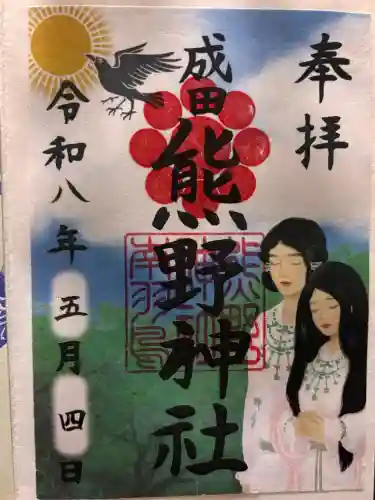 奉拝
成田
熊野神社
令和八年五月四日